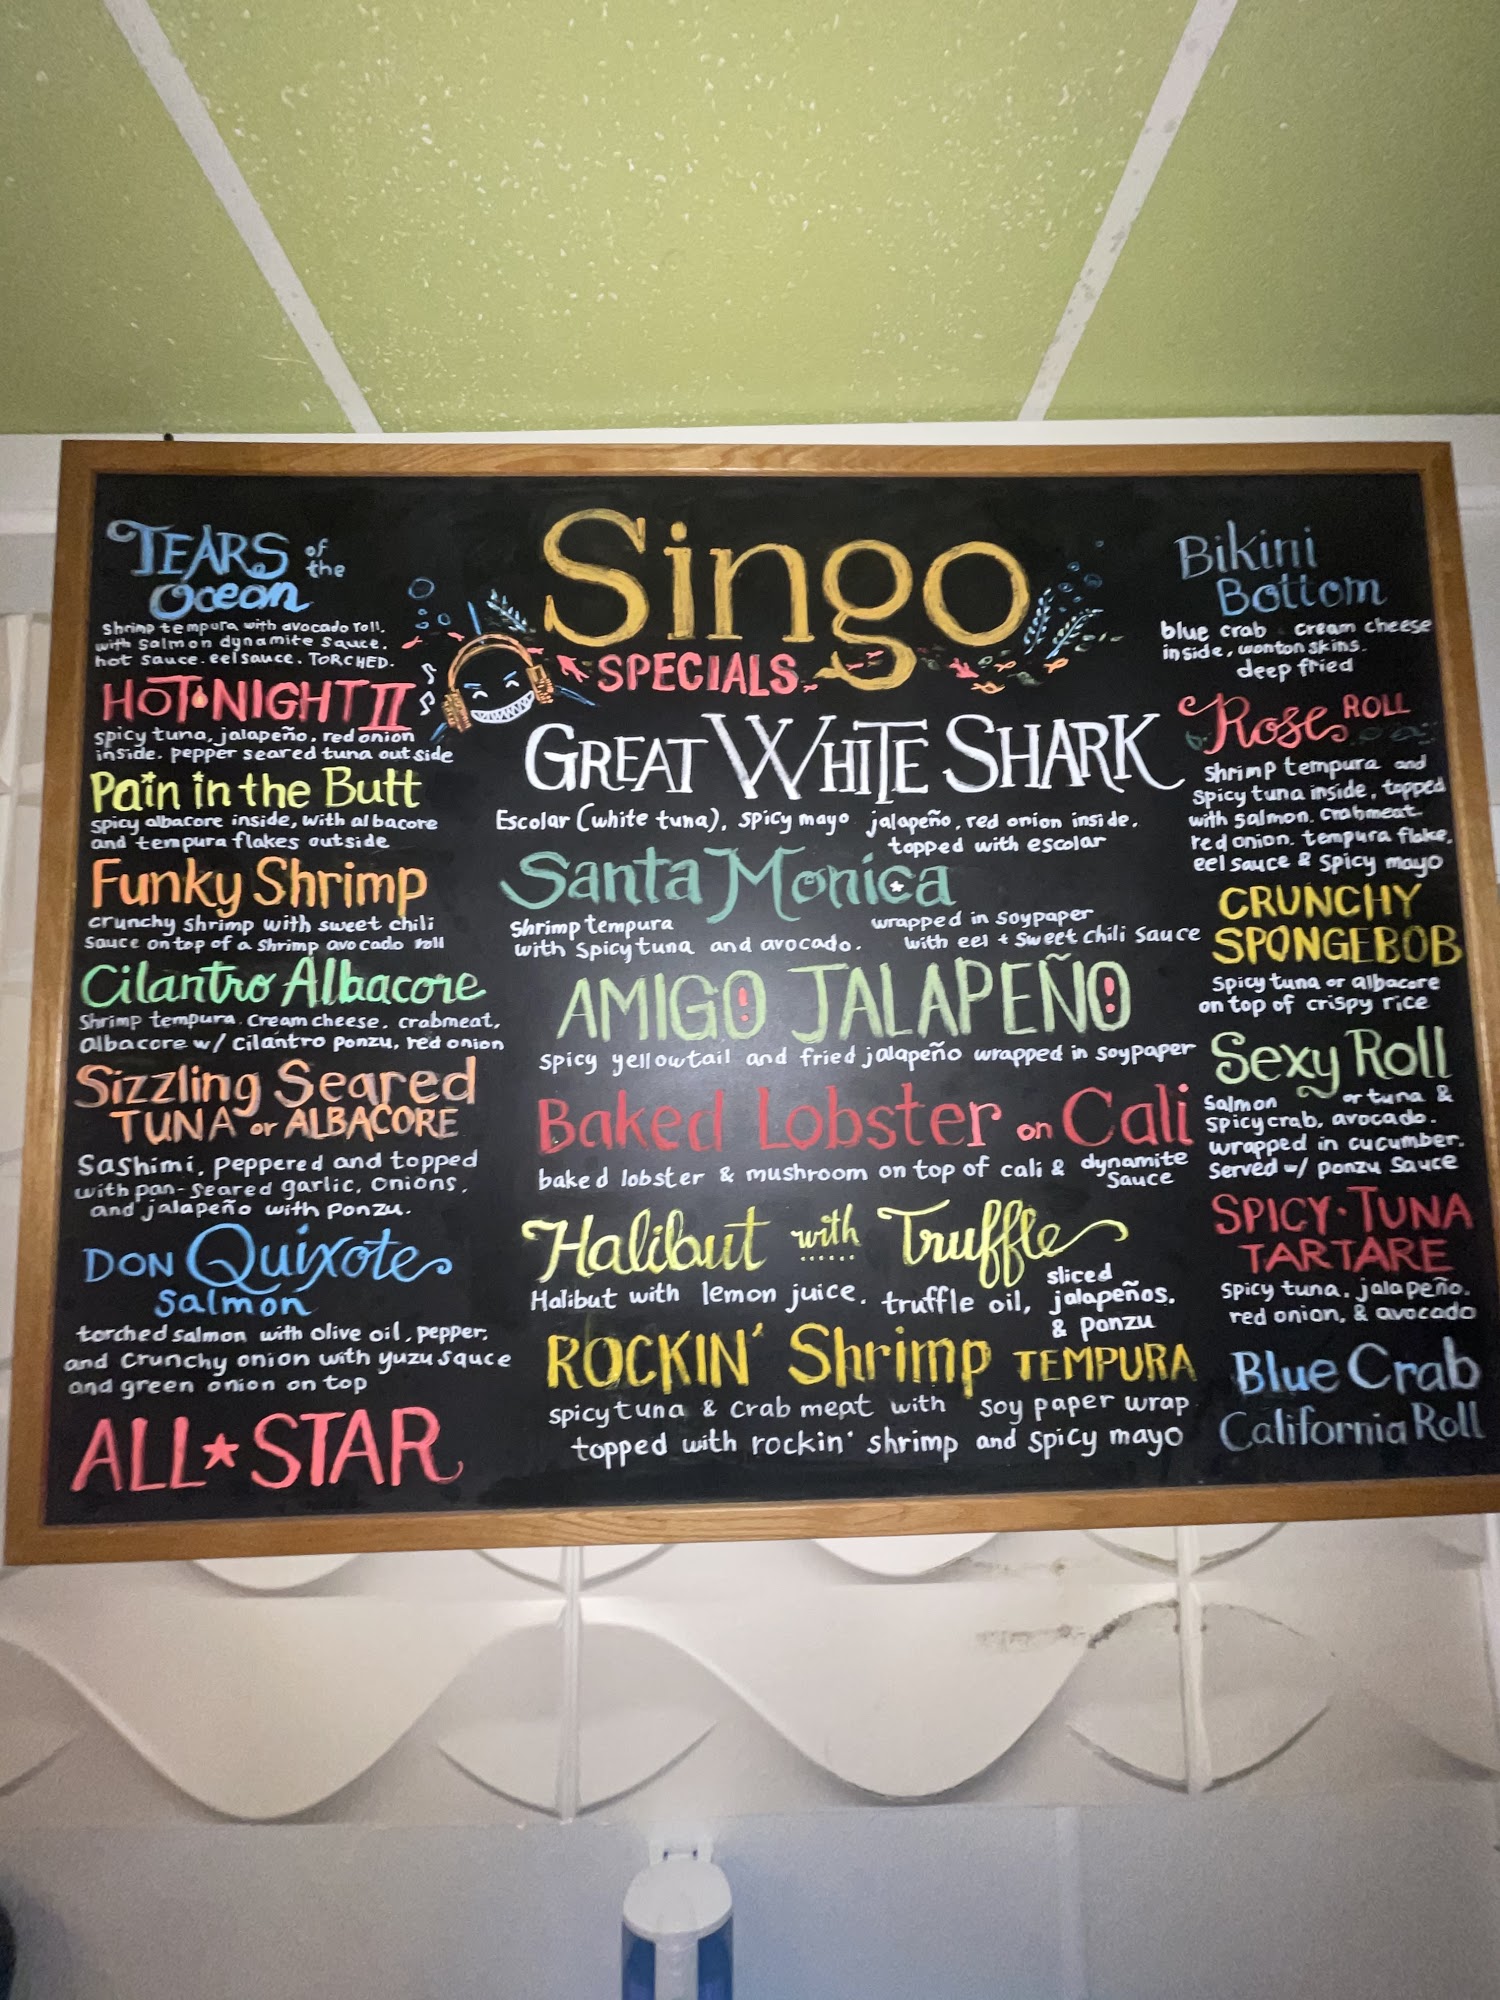 TEARS of the
Ocean
Shrimp tempura with avocado roll.
with salmon dynamite sauce.
hot sauce. eel sauce. TORCHED.
HOT NIGHT II
spicy tuna, jalapeño, red onion
inside. pepper seared tuna outside
Pain in the Butt
spicy albacore inside, with albacore
and tempura flakes outside
Funky Shrimp
crunchy shrimp with sweet chili
sauce on top of a shrimp avocado roll
Cilantro Albacore
Shrimp tempura. cream cheese. crabmeat,
albacore w/ cilantro ponzu, red onion
Sizzling Seared
TUNA or ALBACORE
Sashimi, peppered and topped
with pan-seared garlic, onions,
and jalapeño with ponzu.
DON Quixote
Salmon
torched salmon with olive oil, pepper,
and crunchy onion with yuzu squce
and green onion on top
ALL★STAR
Singo
SPECIALS
GREAT WHITE SHARK
Escolar (white tuna), spicy mayo jalapeño, red onion inside.
topped with escolar
Santa Monica
Shrimp tempura wrapped in soypaper
with spicy tuna and avocado. with eel + sweet chili sauce
AMIGO JALAPEÑO
spicy yellowtail and fried jalapeño wrapped in soypaper
Baked Lobster on Cali
baked lobster & mushroom on top of cali & dynamite
sauce
Halibut with Truffle
Halibut with lemon juice. truffle oil, sliced
jalapeños.
& ponzu
ROCKIN' Shrimp TEMPURA
spicy tuna & crab meat with soy paper wrap
topped with rockin' shrimp and spicy mayo
Bikini
Bottom
blue crab cream cheese
inside, wonton skins.
deep fried
Rose ROLL
Shrimp tempura and
spicy tuna inside, topped
with salmon. crabmeat.
red onion. tempura flake,
eel sauce & spicy mayo
CRUNCHY
SPONGEBOB
Spicy tuna or albacore
on top of crispy rice
Sexy Roll
Salmon or tuna &
spicy crab, avocado.
wrapped in cucumber.
Served w/ ponzu sauce
SPICY·TUNA
TARTARE
spicy tuna, jalapeño,
red onion, & avocado
Blue Crab
California Roll